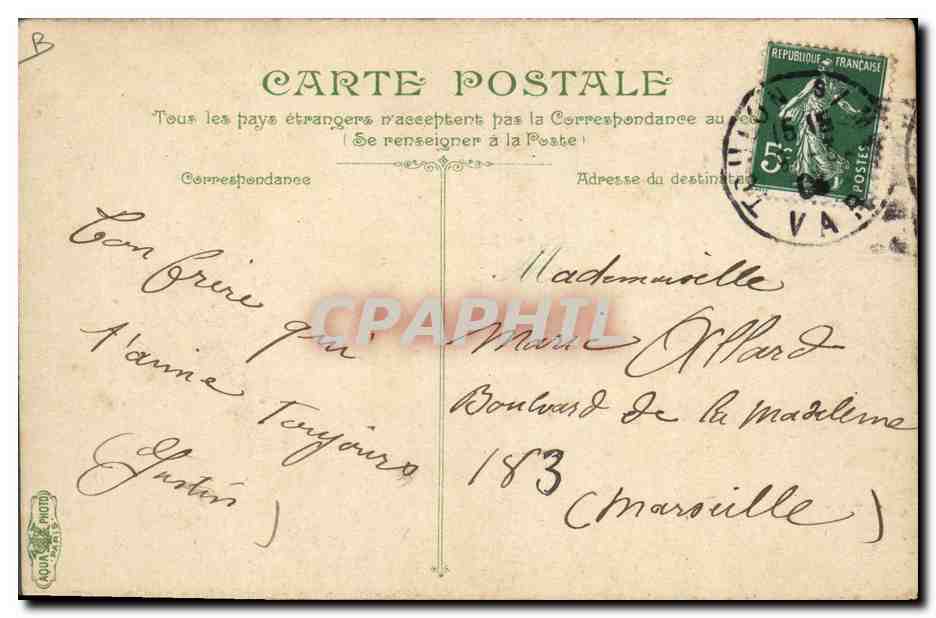 B
CARTE POSTALE
Tous les pays étrangers n'acceptent pas la Correspondance au
(Se renseigner à la Poste)
Correspondance
Adresse du destinata
REPUBLIQUE FRANÇAISE
5
POSTES
TOULON
15 15
VAR
Ton frère
qui
t'aime
Toujours
(Justin)
Mademoiselle
Marie Allard
Boulvard de la Madeleine
183
(Marseille)
CPAPHIL
AQUA PHOTO
PARIS